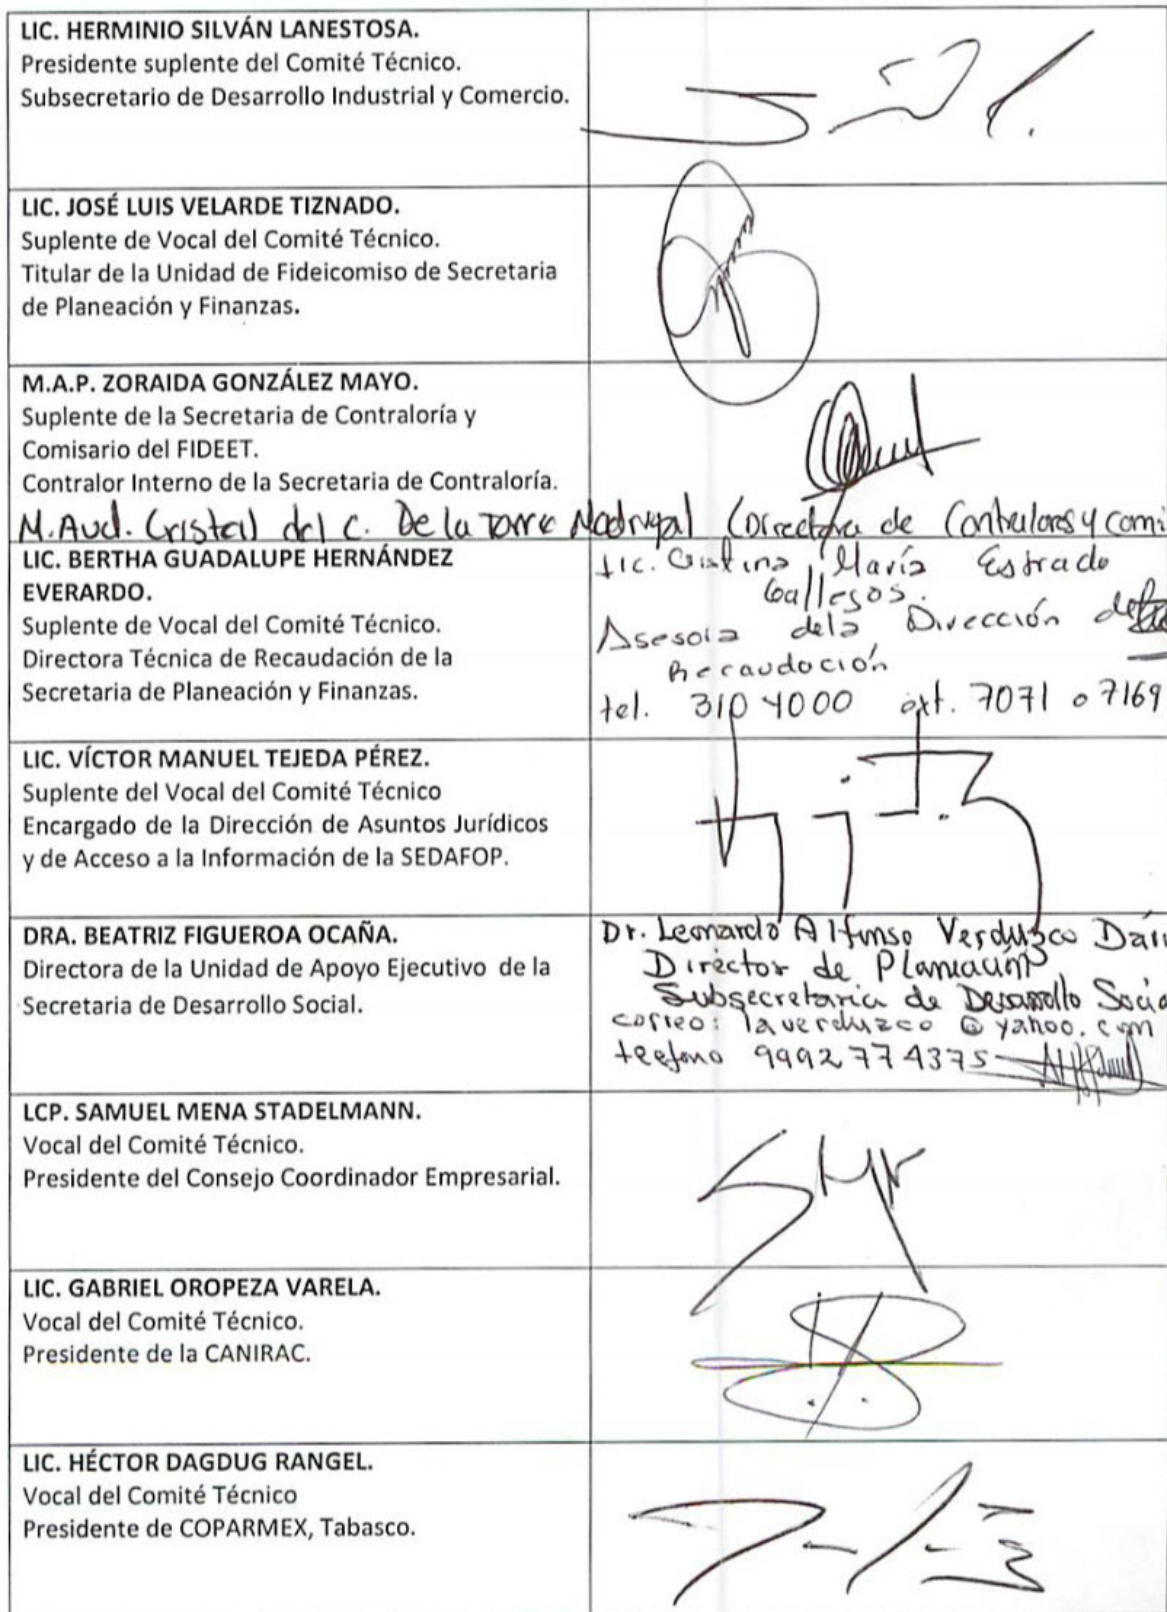 LIC. HERMINIO SILVÁN LANESTOSA.
Presidente suplente del Comité Técnico.
Subsecretario de Desarrollo Industrial y Comercio.
LIC. JOSÉ LUIS VELARDE TIZNADO.
Suplente de Vocal del Comité Técnico.
Titular de la Unidad de Fideicomiso de Secretaria
de Planeación y Finanzas.
M.A.P. ZORAIDA GONZÁLEZ MAYO.
Suplente de la Secretaria de Contraloría y
Comisario del FIDEET.
Contralor Interno de la Secretaria de Contraloría.
M. Aud. Cristal del C. De la Torre Madrigal (Directora de Contralores y comi
LIC. BERTHA GUADALUPE HERNÁNDEZ
EVERARDO.
Suplente de Vocal del Comité Técnico.
Directora Técnica de Recaudación de la
Secretaria de Planeación y Finanzas.
Lic. Cristina María Estrada
Gallegos.
Asesora dela Dirección de
Recaudación
tel. 310 4000 ext. 7071 o 7169
LIC. VÍCTOR MANUEL TEJEDA PÉREZ.
Suplente del Vocal del Comité Técnico
Encargado de la Dirección de Asuntos Jurídicos
y de Acceso a la Información de la SEDAFOP.
DRA. BEATRIZ FIGUEROA OCAÑA.
Directora de la Unidad de Apoyo Ejecutivo de la
Secretaria de Desarrollo Social.
Dr. Leonardo Alfonso Verduzco Dáv
Director de Planeación
Subsecretaria de Desarrollo Socia
correo: laverduzco @ yahoo. com
teefono 9992774375
LCP. SAMUEL MENA STADELMANN.
Vocal del Comité Técnico.
Presidente del Consejo Coordinador Empresarial.
LIC. GABRIEL OROPEZA VARELA.
Vocal del Comité Técnico.
Presidente de la CANIRAC.
LIC. HÉCTOR DAGDUG RANGEL.
Vocal del Comité Técnico
Presidente de COPARMEX, Tabasco.